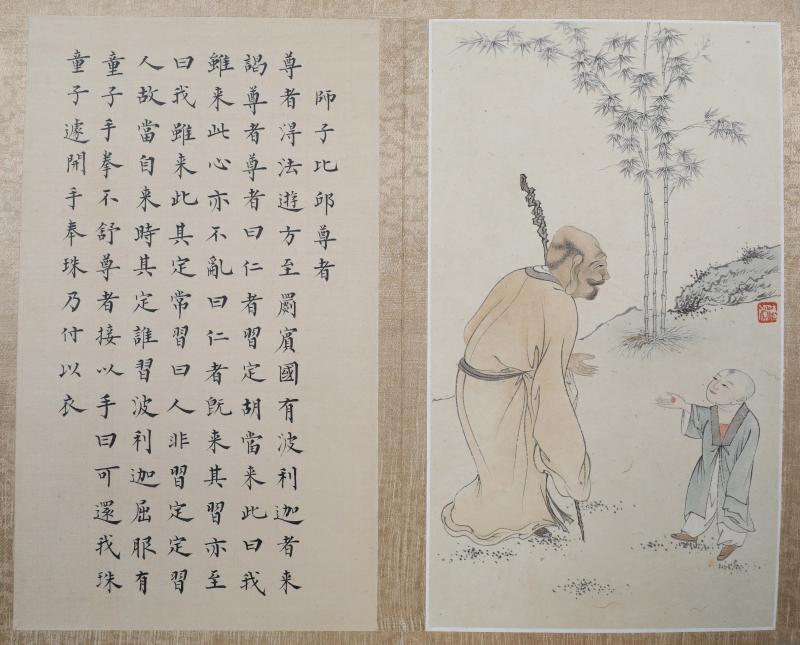 師子比邱尊者
尊者得法遊方至罽賓國有波利迦者来
謁尊者尊者曰仁者習定胡當来此曰我
雖来此心亦不亂曰仁者既来其習亦至
曰我雖来此其定常習曰人非習定定習
人故當自来時其定誰習波利迦屈服有
童子手拳不舒尊者接以手曰可還我珠
童子遽開手奉珠乃付以衣